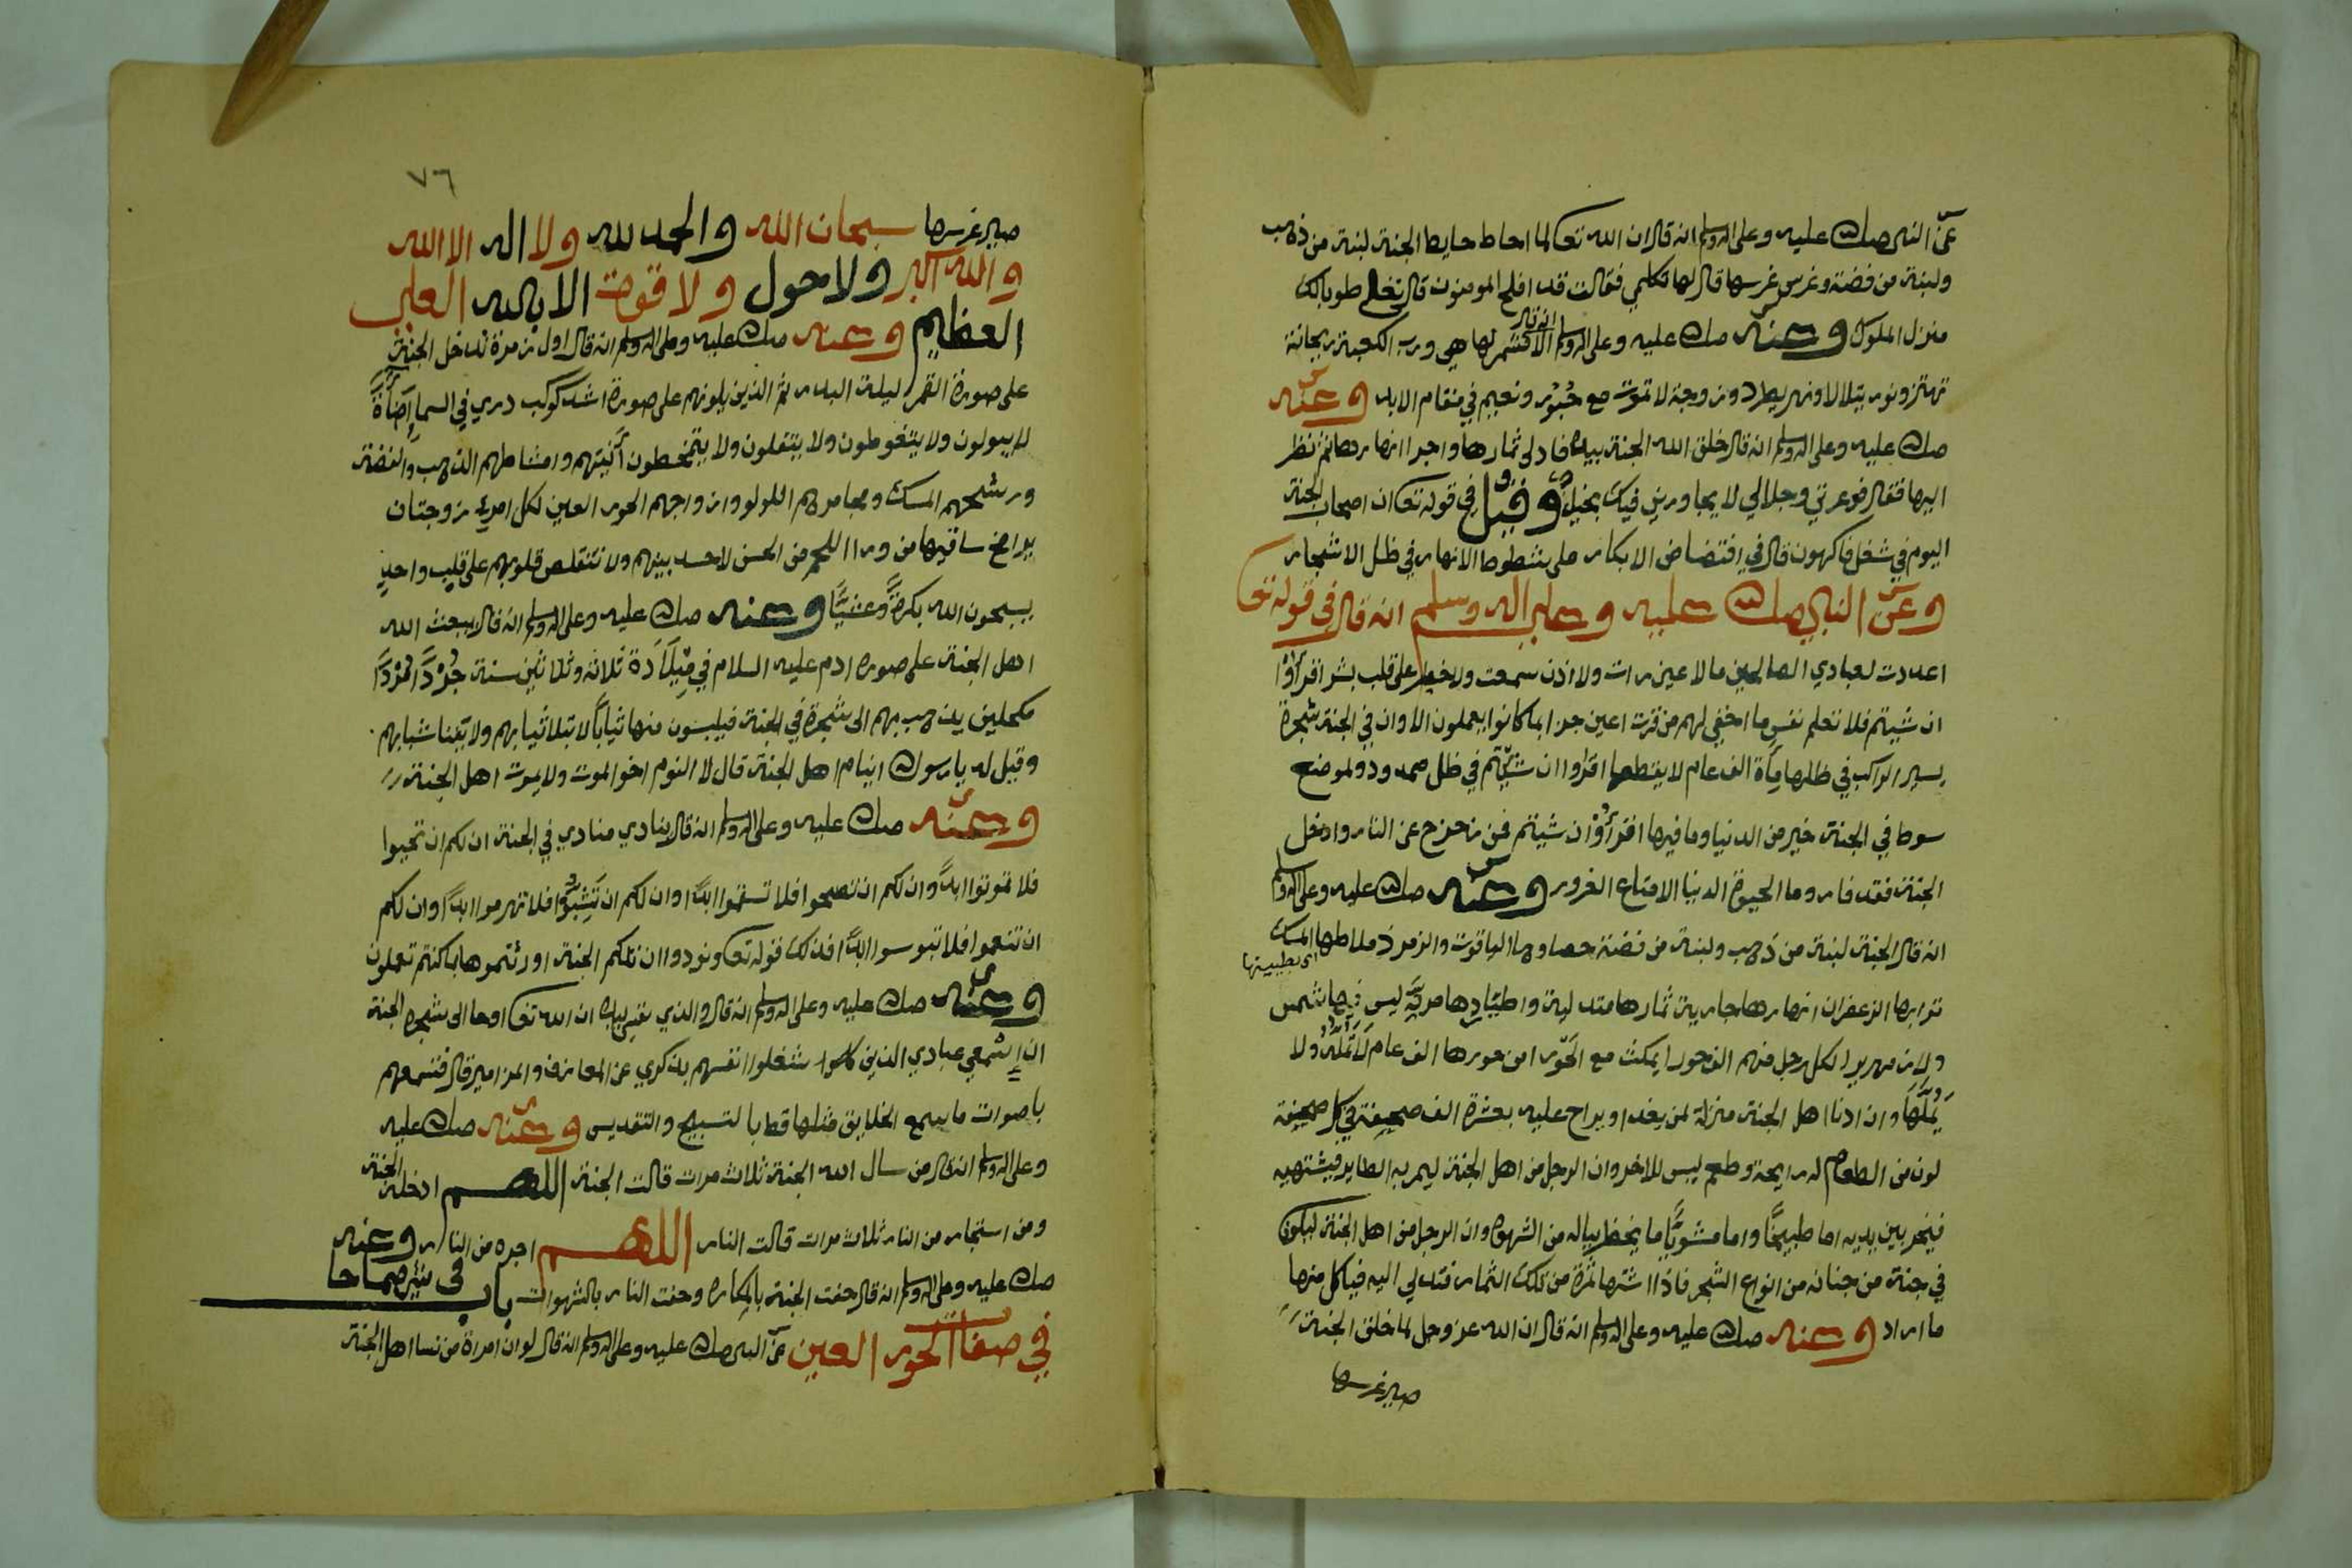 عن النبي صلى الله عليه وعلى اله وسلم انه قال ان الله تعالى لما احاط حايط الجنة لبنة من ذهب
ولبنة من فضة وغرس غرسها قال لها تكلمي فقالت قد افلح المومنون قال طوبا لك
منزل الملوك وعنه صلى الله عليه وعلى اله وسلم انه قال الا مشمر لها هي ورب الكعبة ريحانة
تهتز ونور يتلالا ونهر يطرد وزوجة لا تموت مع حبور ونعيم في مقام الابد وعنه
صلى الله عليه وعلى اله وسلم انه قال خلق الله الجنة بيده فادلى ثمارها واجرا انهارها ثم نظر
اليها فقال فوعزتي وجلالي لا يجاورني فيك بخيل وقيل في قوله تعالى ان اصحاب الجنة
اليوم في شغل فاكهون قال في افتضاض الابكار على شطوط الانهار في ظل الاشجار
وعن النبي صلى الله عليه وعلى اله وسلم انه قال في قوله تعالى
اعددت لعبادي الصالحين مالا عين رات ولا اذن سمعت ولا خطر على قلب بشر اقرأوا
ان شيتم فلا تعلم نفس ما اخفي لهم من قرت اعين جزا بما كانوا يعملون الا وان في الجنة شجرة
يسير الراكب في ظلها مأة الف عام لا يقطعها اقرؤا ان شيتم في ظل ممدود ولموضع
سوط في الجنة خير من الدنيا وما فيها اقرأوا ان شيتم فمن زحزح عن النار وادخل
الجنة فقد فاز وما الحيوة الدنيا الا متاع الغرور وعنه صلى الله عليه وعلى اله وسلم
انه قال الجنة لبنة من ذهب ولبنة من فضة حصاوها الياقوت والزمرد ملاطها المسك
ترابها الزعفران انهارها جارية ثمارها متدلية واطيارها مرنة ليس فيها شمس
ولا زمهريرا لكل رجل منهم الف حورا يمكث مع الحور من حورها الف عام لا تمله ولا
يملها وان ادنا اهل الجنة منزلة لمن يغدا ويراح عليه بعشرة الف صحيفة في كل صحيفة
لون من الطعام له رايحة وطعم ليس للاخر وان الرجل من اهل الجنة ليمر به الطاير فيشتهيه
فيخر بين يديه اما طبيخا واما مشويا ما يخطر بباله من الشهوة وان الرجل من اهل الجنة ليكون
في جنة من جنانه من انواع الشجر فاذا اشتها ثمرة من تلك الثمار فتدلي اليه فياكل منها
ما اراد وعنه صلى الله عليه وعلى اله وسلم انه قال ان الله عز وجل لما خلق الجنة
صير غرسها
٧٦
صير غرسها سبحان الله والحمد لله ولا اله الا الله
والله اكبر ولا حول ولا قوة الا بالله العلي
العظيم وعنه صلى الله عليه وعلى اله وسلم انه قال اول زمرة تدخل الجنة
على صورة القمر ليلة البدر ثم الذين يلونهم على صورة اشد كوكب دري في السما اضأة
لا يبولون ولا يتغوطون ولا يتفلون ولا يتمخطون آنيتهم وامشاطهم الذهب والفضة
ورشحهم المسك ومجامرهم اللولو وازواجهم الحور العين لكل امرء زوجتان
يرا مخ ساقيها من ورا اللحم من الحسن لا حسد بينهم ولا تنقلص قلوبهم على قلب واحد
يسبحون الله بكرة وعشيا وعنه صلى الله عليه وعلى اله وسلم انه قال يبعث الله
اهل الجنة على صورة ادم عليه السلام في ميلاد ثلاثة وثلاثين سنة جردا مردا
مكحلين يذهب بهم الى شجرة في الجنة فيلبسون منها ثيابا لا تبلا ثيابهم ولا يفنا شبابهم
وقيل له يا رسول الله اينام اهل الجنة قال لا النوم اخو الموت ولا يموت اهل الجنة
وعنه صلى الله عليه وعلى اله وسلم انه قال ينادي منادي في الجنة ان لكم ان تحيوا
فلا تموتوا ابدا وان لكم ان تصحوا فلا تسقموا ابدا وان لكم ان تشبوا فلا تهرموا ابدا وان لكم
ان تنعموا فلا تبوسوا ابدا فذلك قوله تعالى ونودوا ان تلكم الجنة اورثتموها بما كنتم تعملون
وعنه صلى الله عليه وعلى اله وسلم انه قال والذي نفسي بيده ان الله تعالى اوحا الى شجرة الجنة
ان اسمعي عبادي الذين شغلوا انفسهم بذكري عن المعازف والمزامير قال فتسمعهم
باصوات ما يسمع الخلايق مثلها قط بالتسبيح والتقديس وعنه صلى الله عليه
وعلى اله وسلم انه قال من سال الله الجنة ثلاث مرات قالت الجنة اللهم ادخله الجنة
ومن استجار من النار ثلاث مرات قالت النار اللهم اجره من النار وعنه
صلى الله عليه وعلى اله وسلم انه قال حفت الجنة بالمكاره وحفت النار بالشهوات باب
في صفات الحور العين عن النبي صلى الله عليه وعلى اله وسلم انه قال لو ان امرة من نسا اهل الجنة